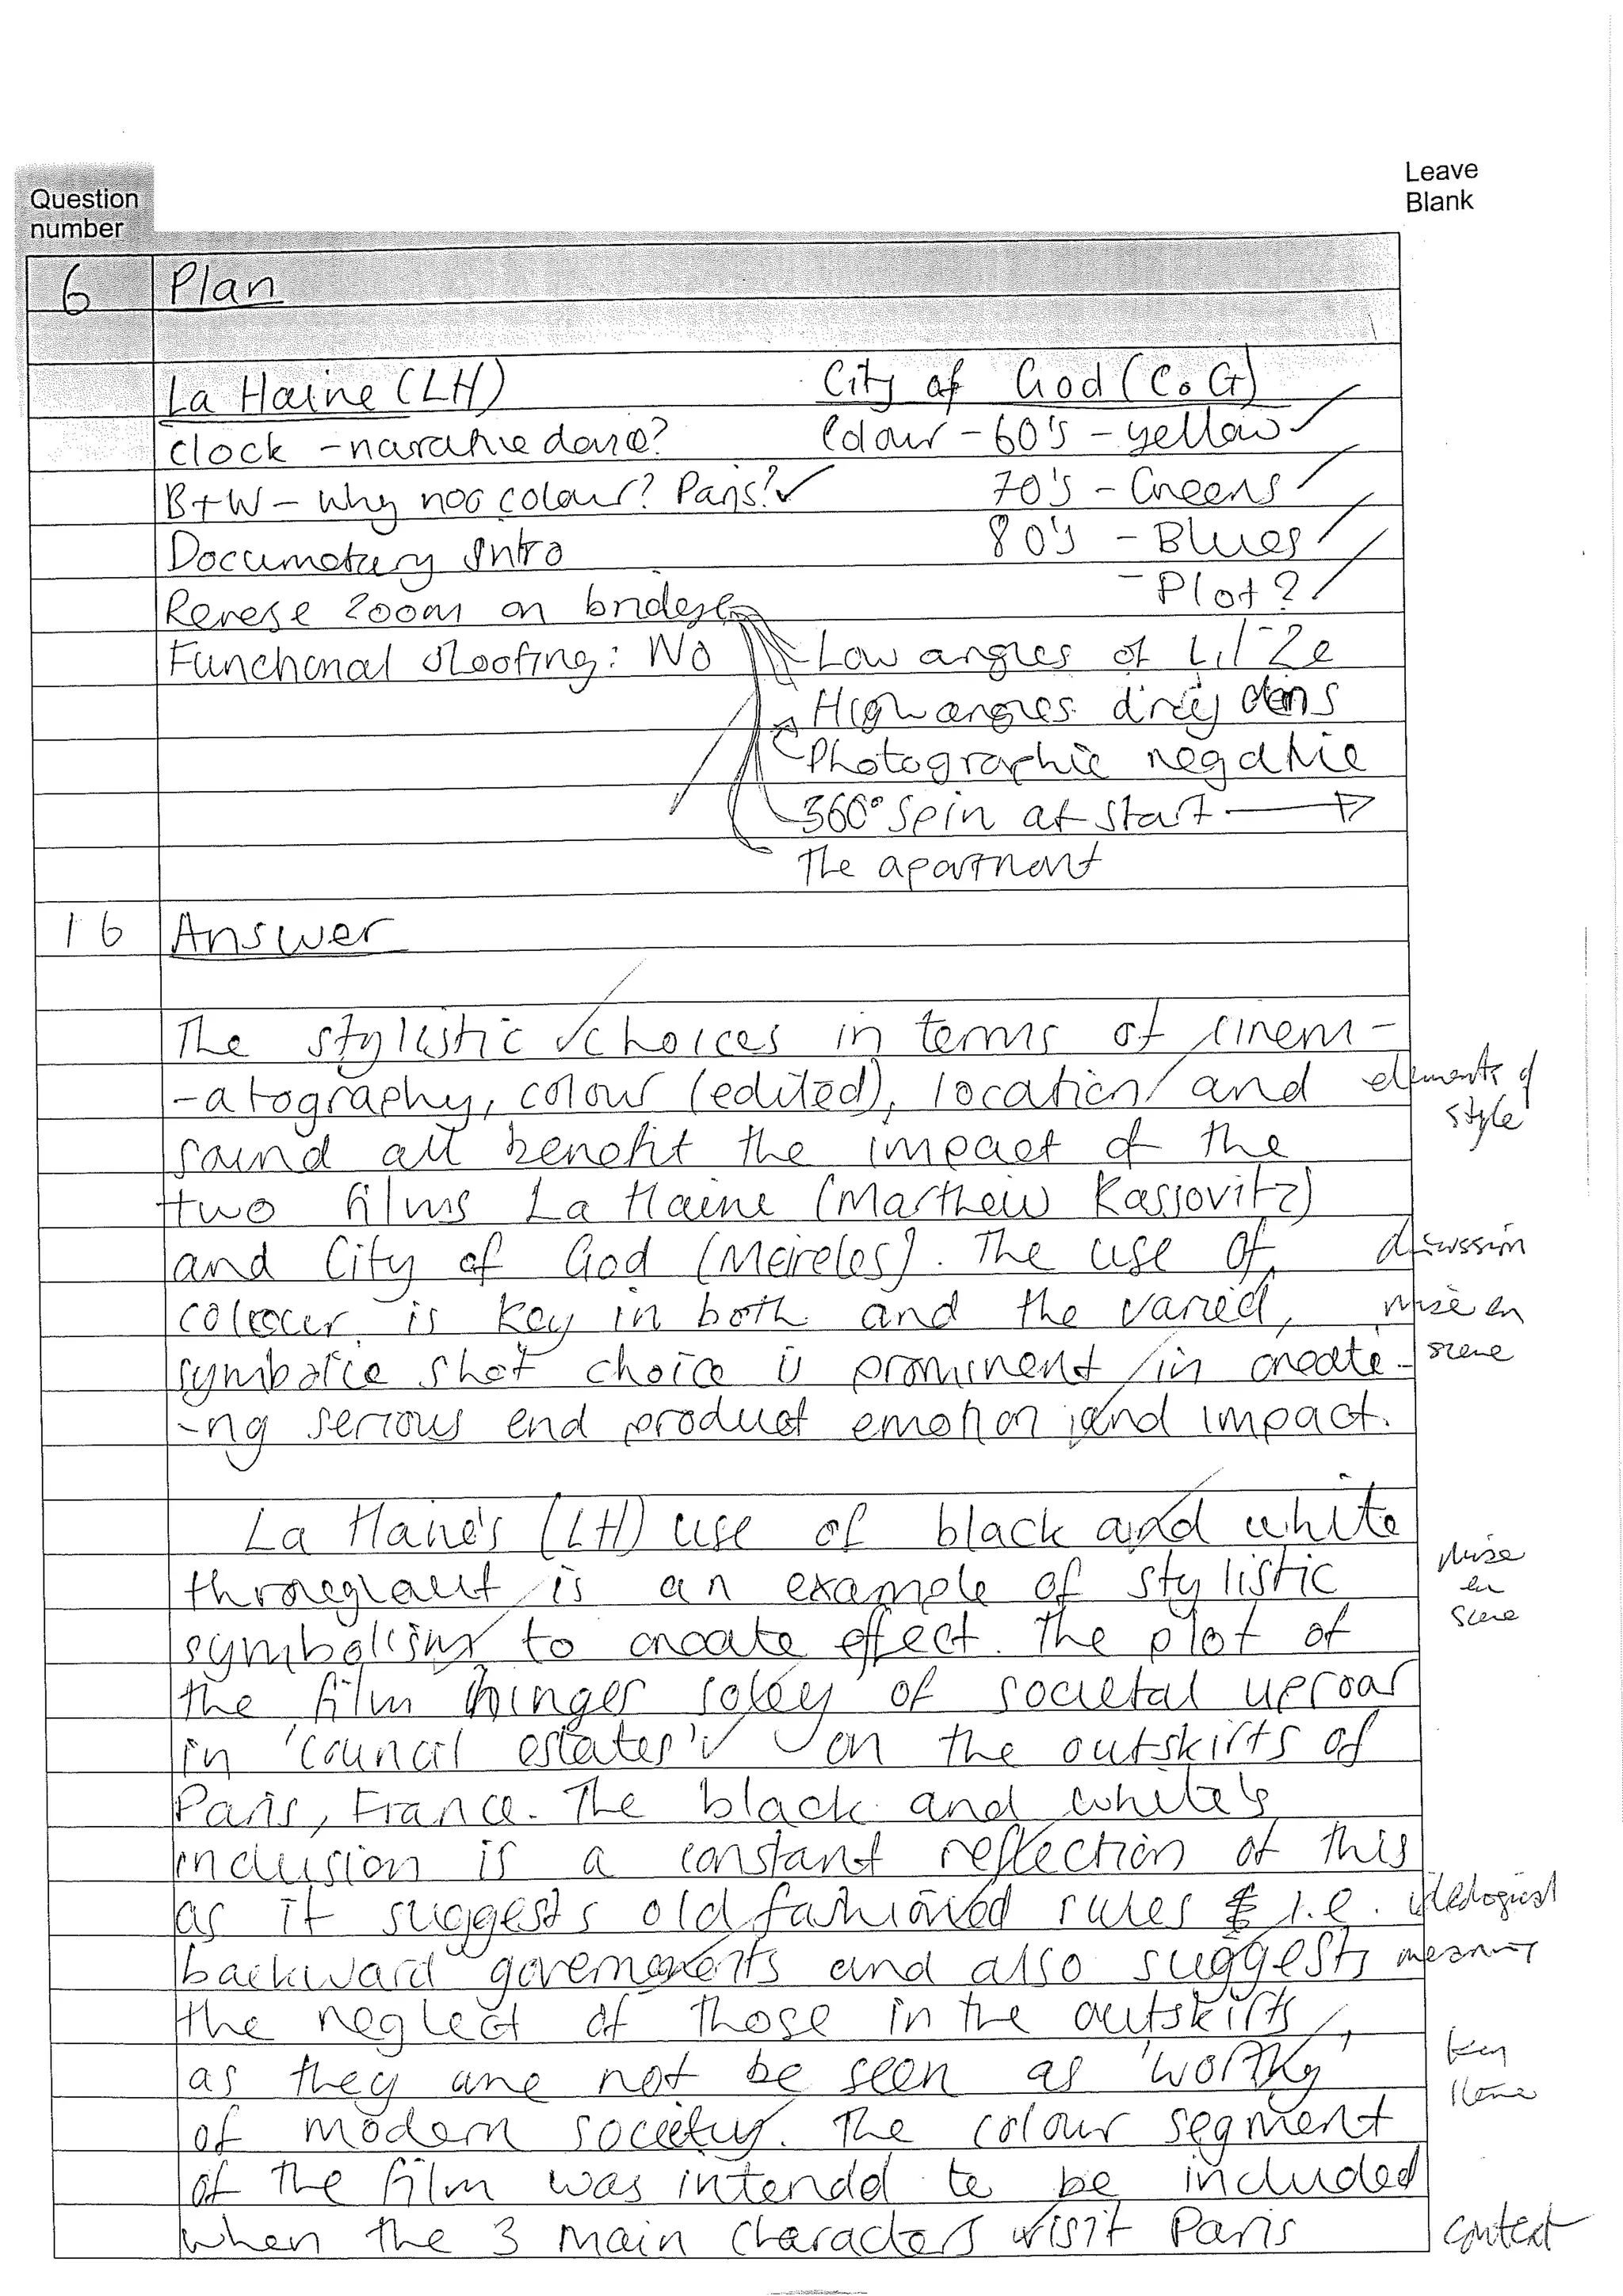 Leave
Blank
Question
number
6 Plan
La Haine (LH) City of God (CoG)
Clock - narative device? Colour - 60's - yellow
B+W - Why not colour? Paris? ✓ 70's - Greens
Documetary Intro 80's - Blues
- Plot?
Revese zoom on bridge
Functional shooting: No - Low angles of Lil Ze
High angles
Photographic negative
360° spin at start →
The apartment
16 Answer
The stylistic choices in terms of cinem-
-atography, colour (edited), location and elements of
style
sound all benefit the impact of the
two films La Haine (Matthew Kassovitz)
and City of God (Mereles). The use of discussion
colour is key in both and the varied, mise en
symbolic shot choice is prominent in create- scene
-ng serious end product emotion and impact.
La Haine's (LH) use of black and white
throughout is an example of stylistic mise
en
scene
symbolism to create effect. The plot of
the film hinges soley of societal uproar
in 'council estates' on the outskirts of
Paris, France. The black and white's
inclusion is a constant reflection of this
as it suggests old fashioned rules i.e. ideological
backward governments and also suggests meaning
the neglect of those in the outskirts,
as they are not be seen as 'worthy' key
of modern society. The colour segment
of the film was intendd to be included
when the 3 main characters visit Paris context